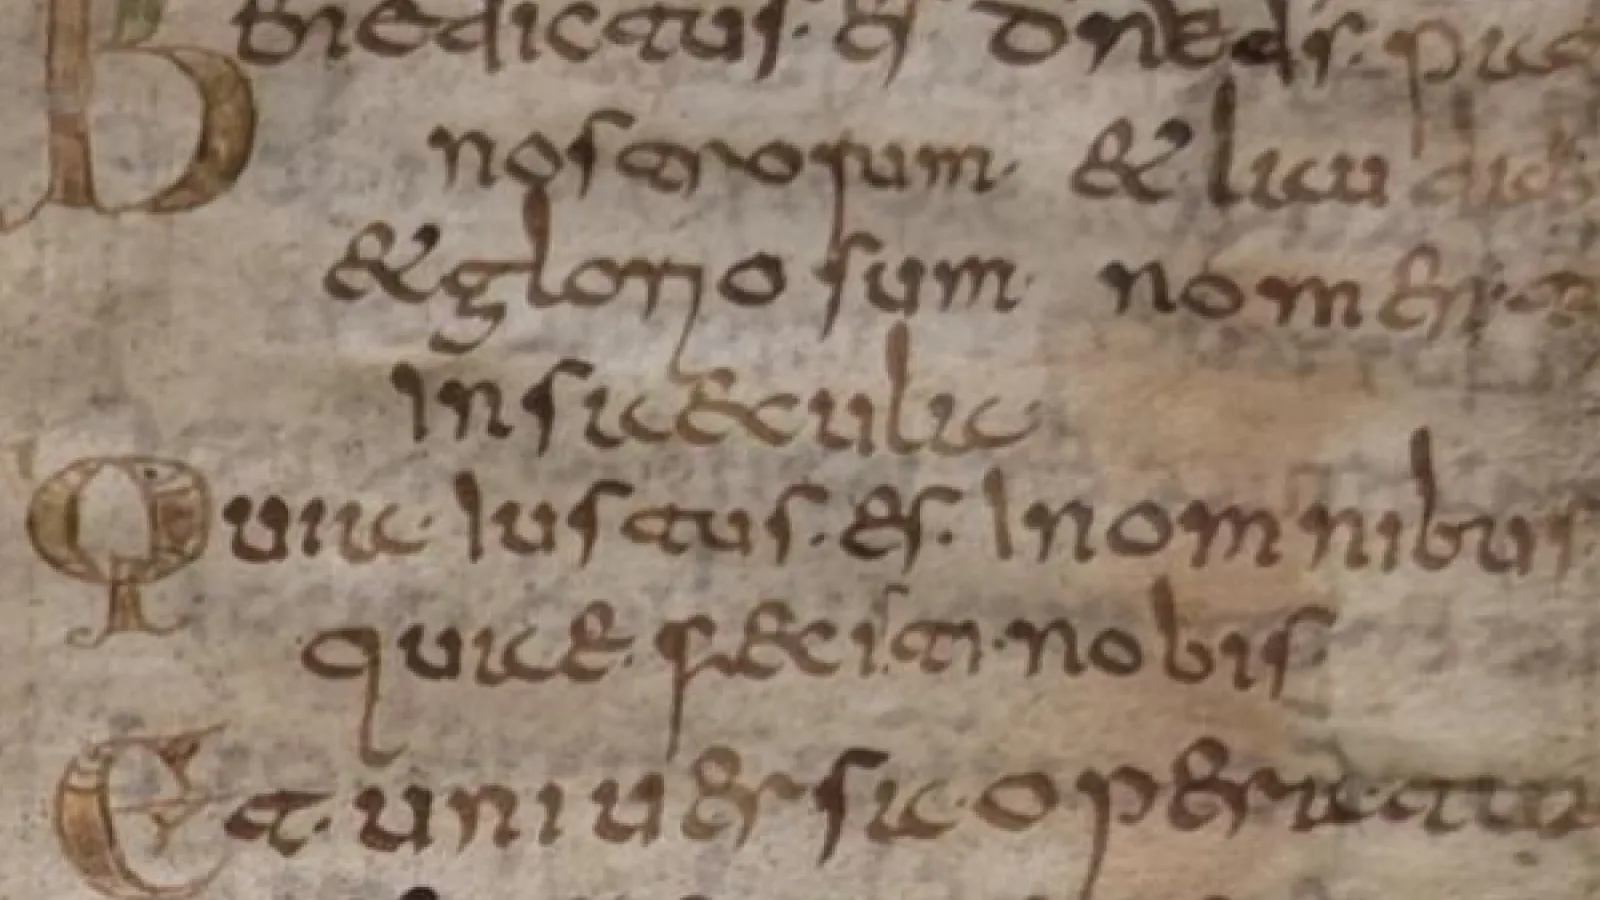 Bnedictus. es. dne ds. pa
nostrorum. & lau
& gloriosum. nomen. t
In saecula
Quia. Iustus. es. In omnibus.
quae. fecisti. nobis
Et. uniuersa. opera tu